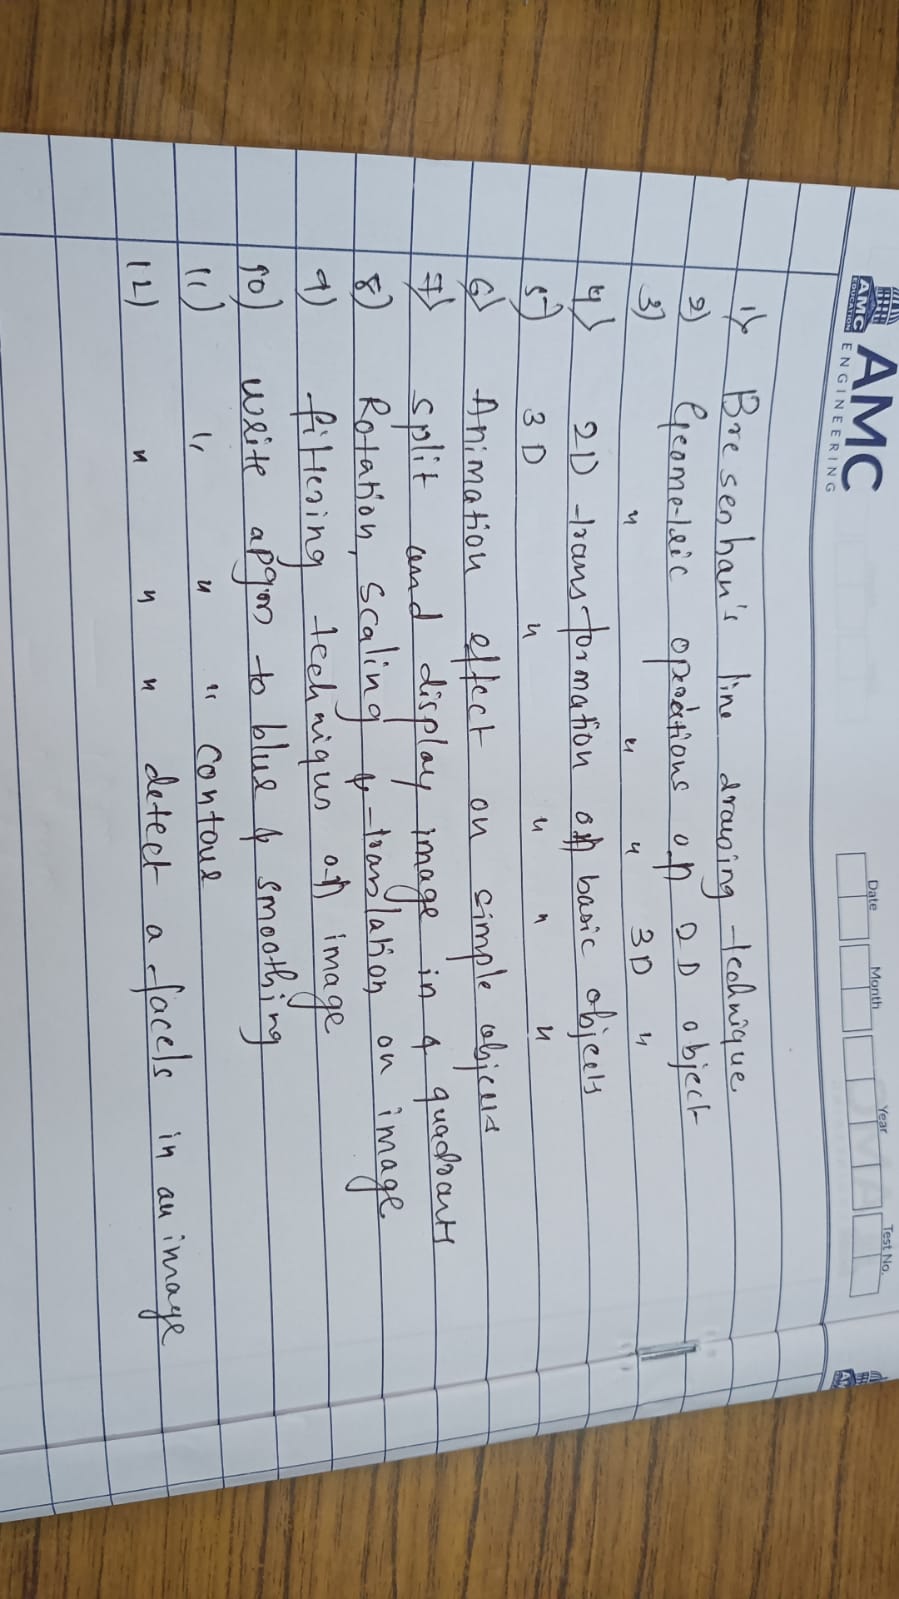 AMC
EDUCATION
AMC
ENGINEERING
Date Month Year Test No.
1) Bresenhan's line drawing technique
2) Geometric operations on 2D object
3) " " " 3D "
4) 2D transformation on basic objects
5) 3D " " " "
6) Animation effect on simple objects
7) split and display image in 4 quadrants
8) Rotation, scaling & translation on image
9) filtering techniques on image
10) write a pgm to blur & smoothing
11) " " " contour
12) " " " detect a face/s in an image